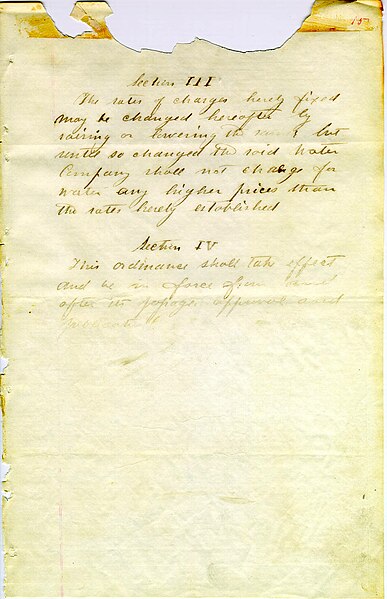 157
Section III
The rates of charges hereby fixed
may be changed hereafter by
raising or lowering the same but
until so changed the said Water
Company shall not charge for
water any higher prices than
the rates hereby established
Section IV
This ordinance shall take effect
and be in force from and
after its passage approval and
publication